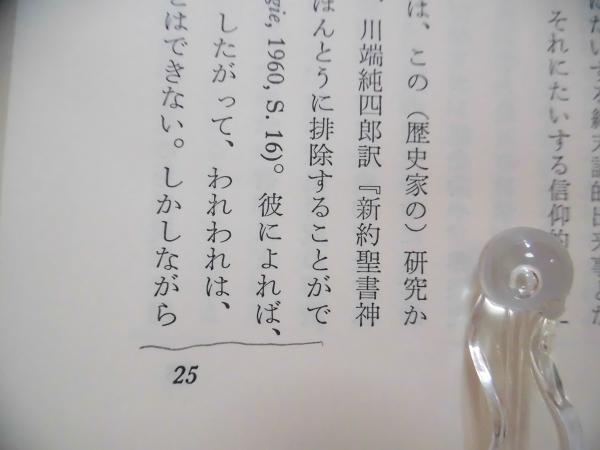 それにたいする信仰的
は、この（歴史家の）研究か
川端純四郎訳『新約聖書神
ほんとうに排除することがで
gie, 1960, S. 16)。彼によれば、
したがって、われわれは、
とはできない。しかしながら
25